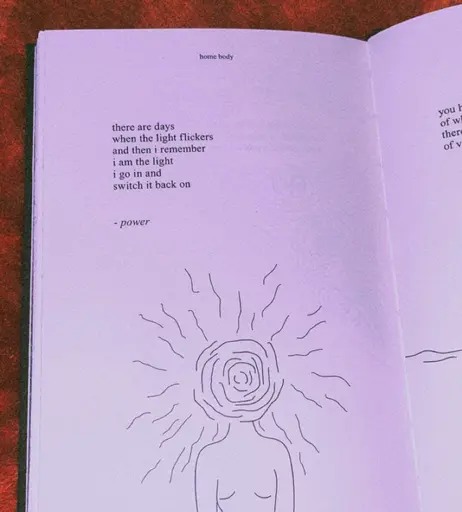 home body
there are days
when the light flickers
and then i remember
i am the light
i go in and
switch it back on
- power
you
of
there
of